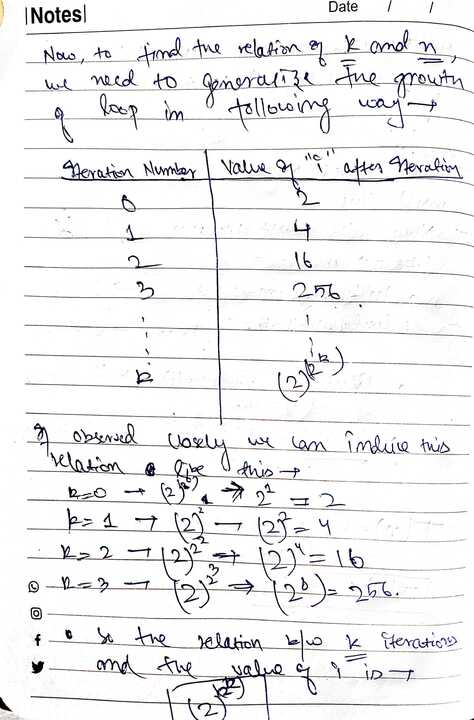 |Notes| Date / /
Now, to find the relation of k and n,
we need to generalize the growth
of loop in following way →
Iteration Number | Value of "i" after Iteration
0 2
1 4
2 16
3 256
k (2)^(2^k)
If observed closely we can induce this
relation like this →
k=0 → (2)^2^0 ⇒ 2^1 = 2
k=1 → (2)^2^1 → (2)^2 = 4
k=2 → (2)^2^2 ⇒ (2)^4 = 16
k=3 → (2)^2^3 ⇒ (2^8) = 256.
• So the relation b/w k iterations
and the value of i is →
(2)^(2^k)